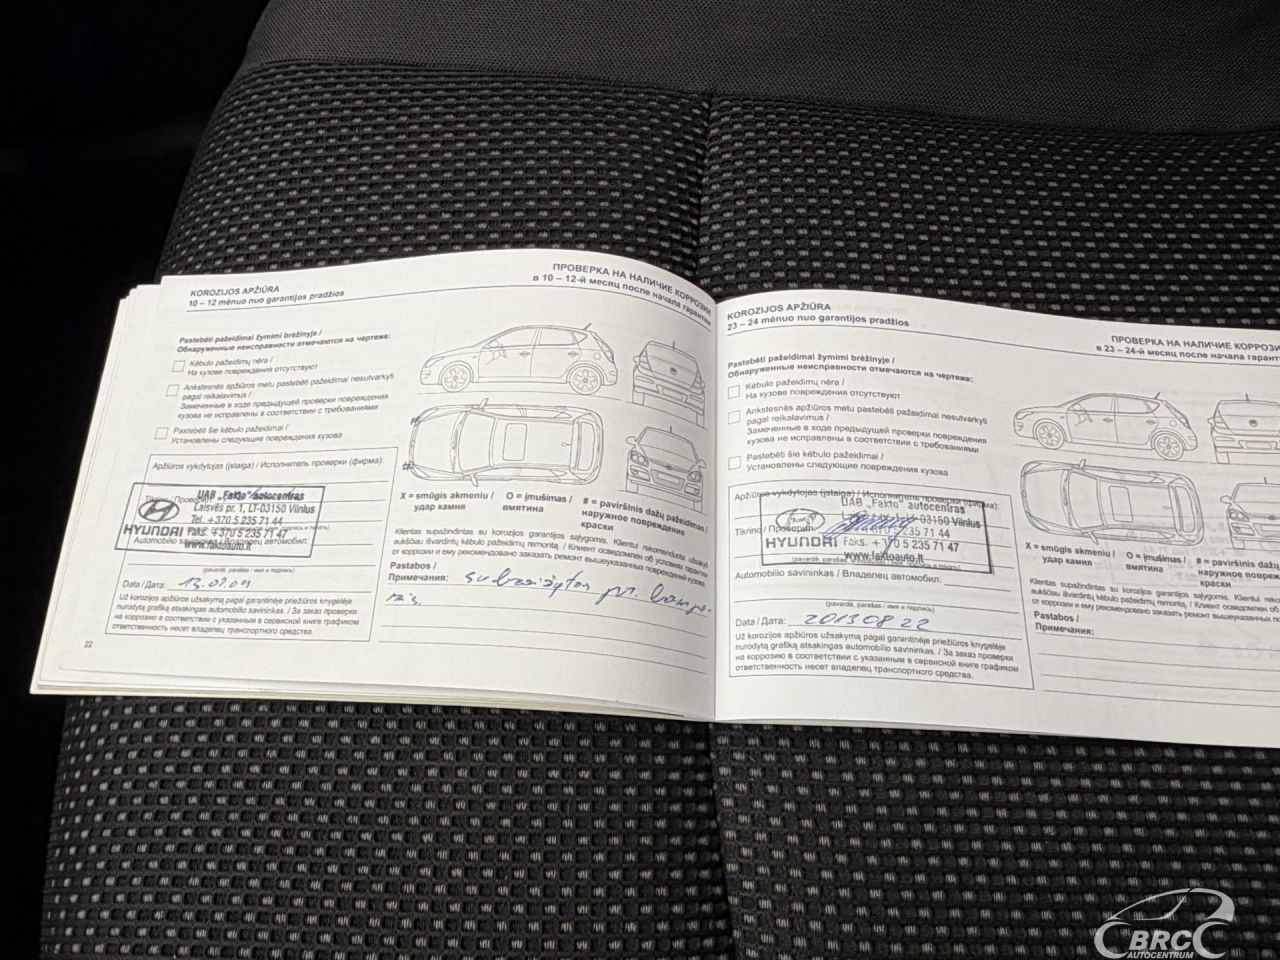 KOROZIJOS APŽIŪRA
10 – 12 mėnuo nuo garantijos pradžios
ПРОВЕРКА НА НАЛИЧИЕ КОРРОЗИИ
в 10 – 12-й месяц после начала гарантии
Pastebėti pažeidimai žymimi brėžinyje /
Обнаруженные неисправности отмечаются на чертеже:
Kėbulo pažeidimų nėra /
На кузове повреждения отсутствуют
Ankstesnės apžiūros metu pastebėti pažeidimai nesutvarkyti
pagal reikalavimus /
Замеченные в ходе предыдущей проверки повреждения
кузова не исправлены в соответствии с требованиями
Pastebėti šie kėbulo pažeidimai /
Установлены следующие повреждения кузова
Apžiūros vykdytojas (įstaiga) / Исполнитель проверки (фирма):
UAB „Fakto“ autocentras
Laisvės pr. 1, LT-03150 Vilnius
Tel. +370 5 235 71 44
HYUNDAI Faks. +370 5 235 71 47
www.faktoauto.lt
Automobilio savininkas / Владелец автомобиля:
(pavardė, parašas / имя и подпись)
Data / Дата: 13.09.04
Už korozijos apžiūros užsakymą pagal garantinėje priežiūros knygelėje
nurodytą grafiką atsakingas automobilio savininkas. / За заказ проверки
на коррозию в соответствии с указанным в сервисной книге графиком
ответственность несет владелец транспортного средства.
X = smūgis akmeniu /
удар камня
O = įmušimas /
вмятина
# = paviršinis dažų pažeidimas /
наружное повреждение
краски
Klientas supažindintas su korozijos garantijos sąlygomis. Klientui rekomenduota užsakyti
aukščiau išvardintų kėbulo pažeidimų remontą. / Клиент осведомлен об условиях гарантии
от коррозии и ему рекомендовано заказать ремонт вышеуказанных повреждений кузова.
Pastabos /
Примечания: subraižytas pr.
22
KOROZIJOS APŽIŪRA
23 – 24 mėnuo nuo garantijos pradžios
ПРОВЕРКА НА НАЛИЧИЕ КОРРОЗИ
в 23 – 24-й месяц после начала гарант
Pastebėti pažeidimai žymimi brėžinyje /
Обнаруженные неисправности отмечаются на чертеже:
Kėbulo pažeidimų nėra /
На кузове повреждения отсутствуют
Ankstesnės apžiūros metu pastebėti pažeidimai nesutvarkyti
pagal reikalavimus /
Замеченные в ходе предыдущей проверки повреждения
кузова не исправлены в соответствии с требованиями
Pastebėti šie kėbulo pažeidimai /
Установлены следующие повреждения кузова
Apžiūros vykdytojas (įstaiga) / Исполнитель проверки (фирма):
UAB „Fakto“ autocentras
LT-03150 Vilnius
Tikrino / Проверил:
5 235 71 44
HYUNDAI Faks. +370 5 235 71 47
www.faktoauto.lt
Automobilio savininkas / Владелец автомобиля:
(pavardė, parašas / имя и подпись)
Data / Дата: 2013 08 22
Už korozijos apžiūros užsakymą pagal garantinėje priežiūros knygelėje
nurodytą grafiką atsakingas automobilio savininkas. / За заказ проверки
на коррозию в соответствии с указанным в сервисной книге графиком
ответственность несет владелец транспортного средства.
X = smūgis akmeniu /
удар камня
O = įmušimas /
вмятина
# = paviršinis
наружное повреж
краски
Klientas supažindintas su korozijos garantijos sąlygomis. Klientui reko
aukščiau išvardintų kėbulo pažeidimų remontą. / Клиент осведомлен
от коррозии и ему рекомендовано заказать ремонт вышеуказанных по
Pastabos /
Примечания:
BRC
AUTOCENTRUM